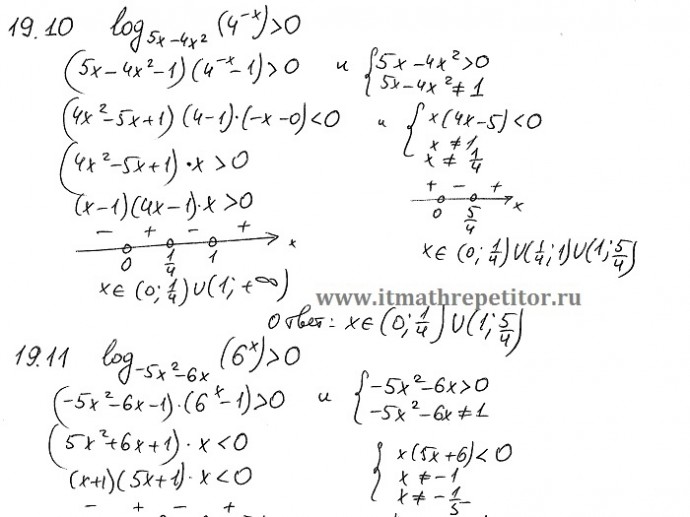 19.10 log_{5x-4x²}(4^{-x})>0
(5x-4x²-1)(4^{-x}-1)>0 и {5x-4x²>0
5x-4x²≠1
(4x²-5x+1)(4-1)·(-x-0)<0 и {x(4x-5)<0
x≠1,
x≠1/4
(4x²-5x+1)·x>0
(x-1)(4x-1)·x>0
+ - +
0 5/4 x
- + - +
0 1/4 1 x
x∈(0;1/4)∪(1/4;1)∪(1;5/4)
x∈(0;1/4)∪(1;+∞)
www.itmathrepetitor.ru
Ответ: x∈(0;1/4)∪(1;5/4)
19.11 log_{-5x²-6x}(6^x)>0
(-5x²-6x-1)·(6^x-1)>0 и {-5x²-6x>0
-5x²-6x≠1
(5x²+6x+1)·x<0
(x+1)(5x+1)·x<0
{x(5x+6)<0
x≠-1
x≠-1/5
- + - +